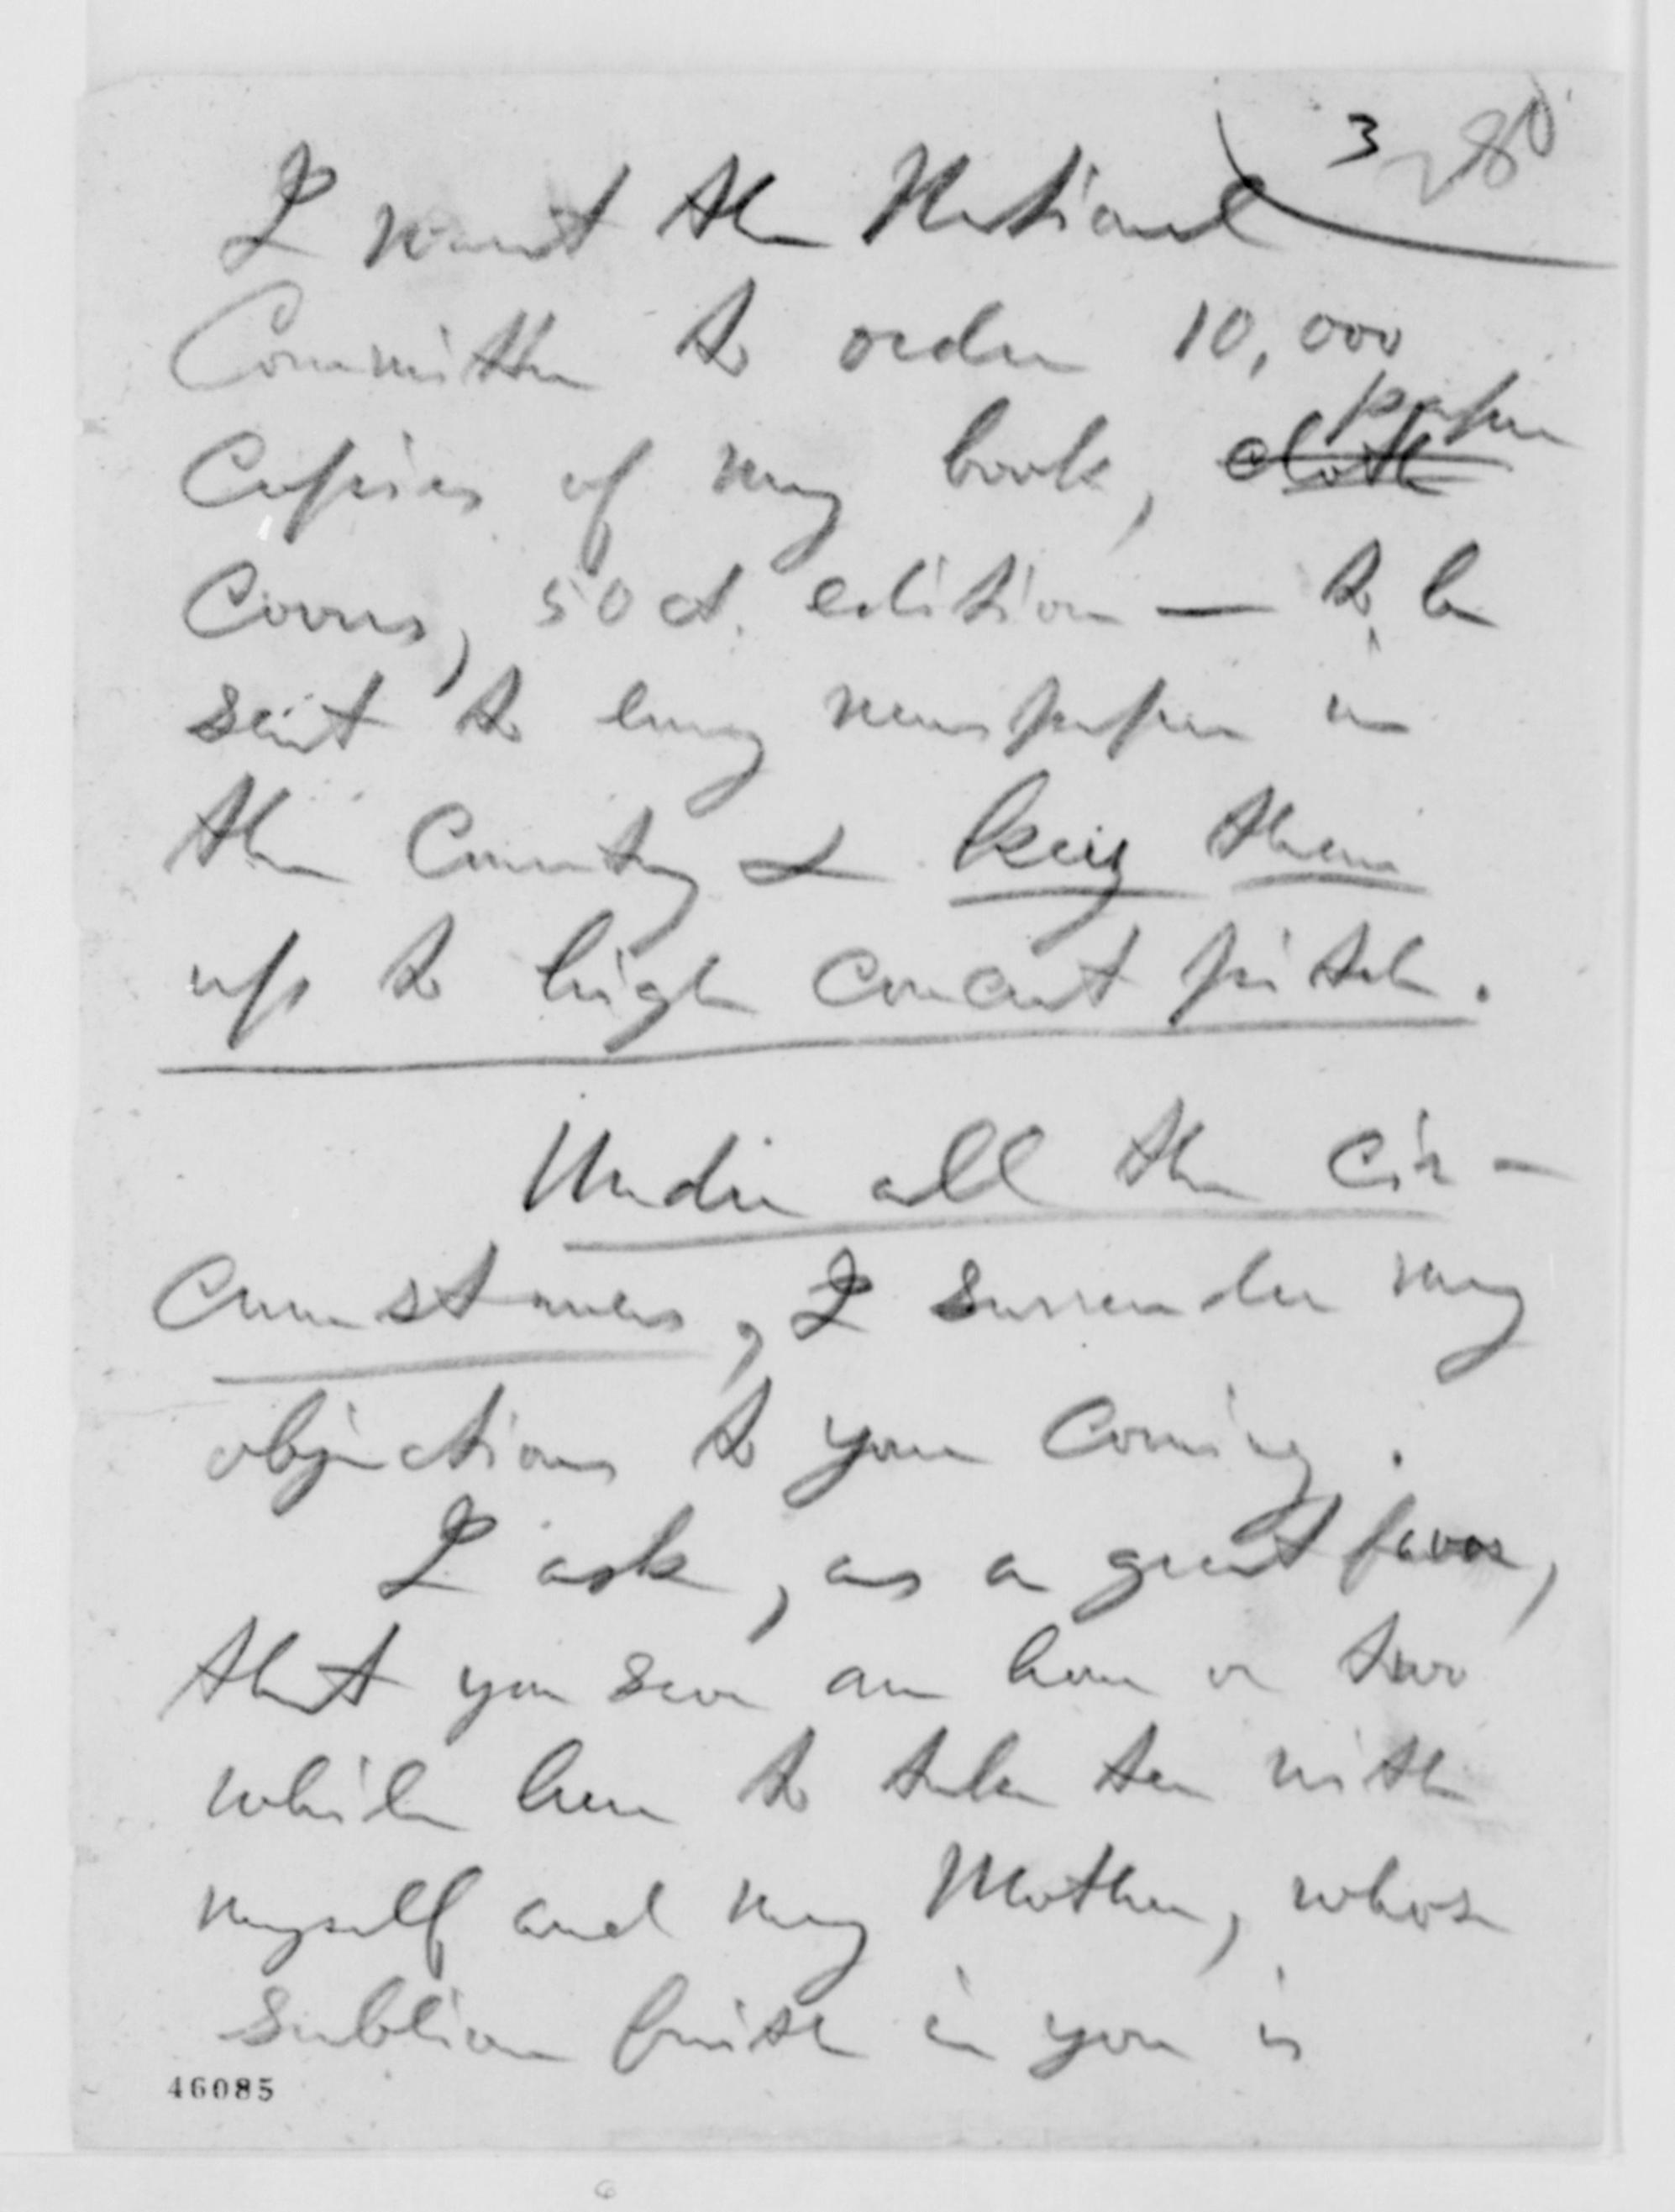 3 280
I want the National
Committee to order 10,000
paper
Copies of my book, ~~cloth~~
Covers, 50 ct. edition — to be
sent to every newspaper in
the Country & keep them
up to high concert pitch.
Under all the cir-
cumstances, I surrender my
objections to your coming.
I ask, as a great favor,
that you save an hour or two
while here to take tea with
myself and my Mother, whose
sublime faith in you is
46085